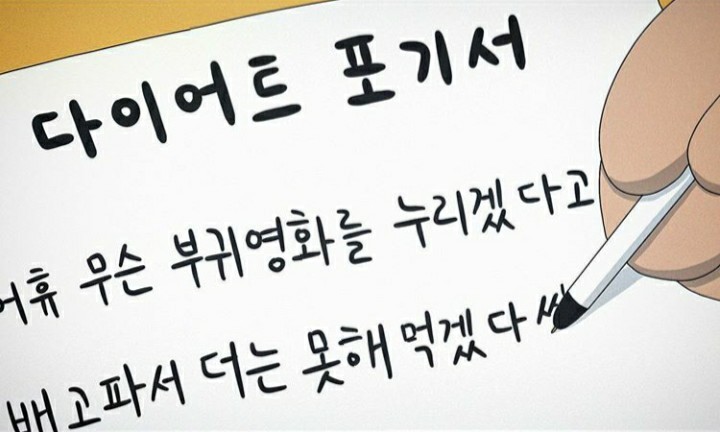 다이어트 포기서
어휴 무슨 부귀영화를 누리겠다고
배고파서 더는 못해먹겠다